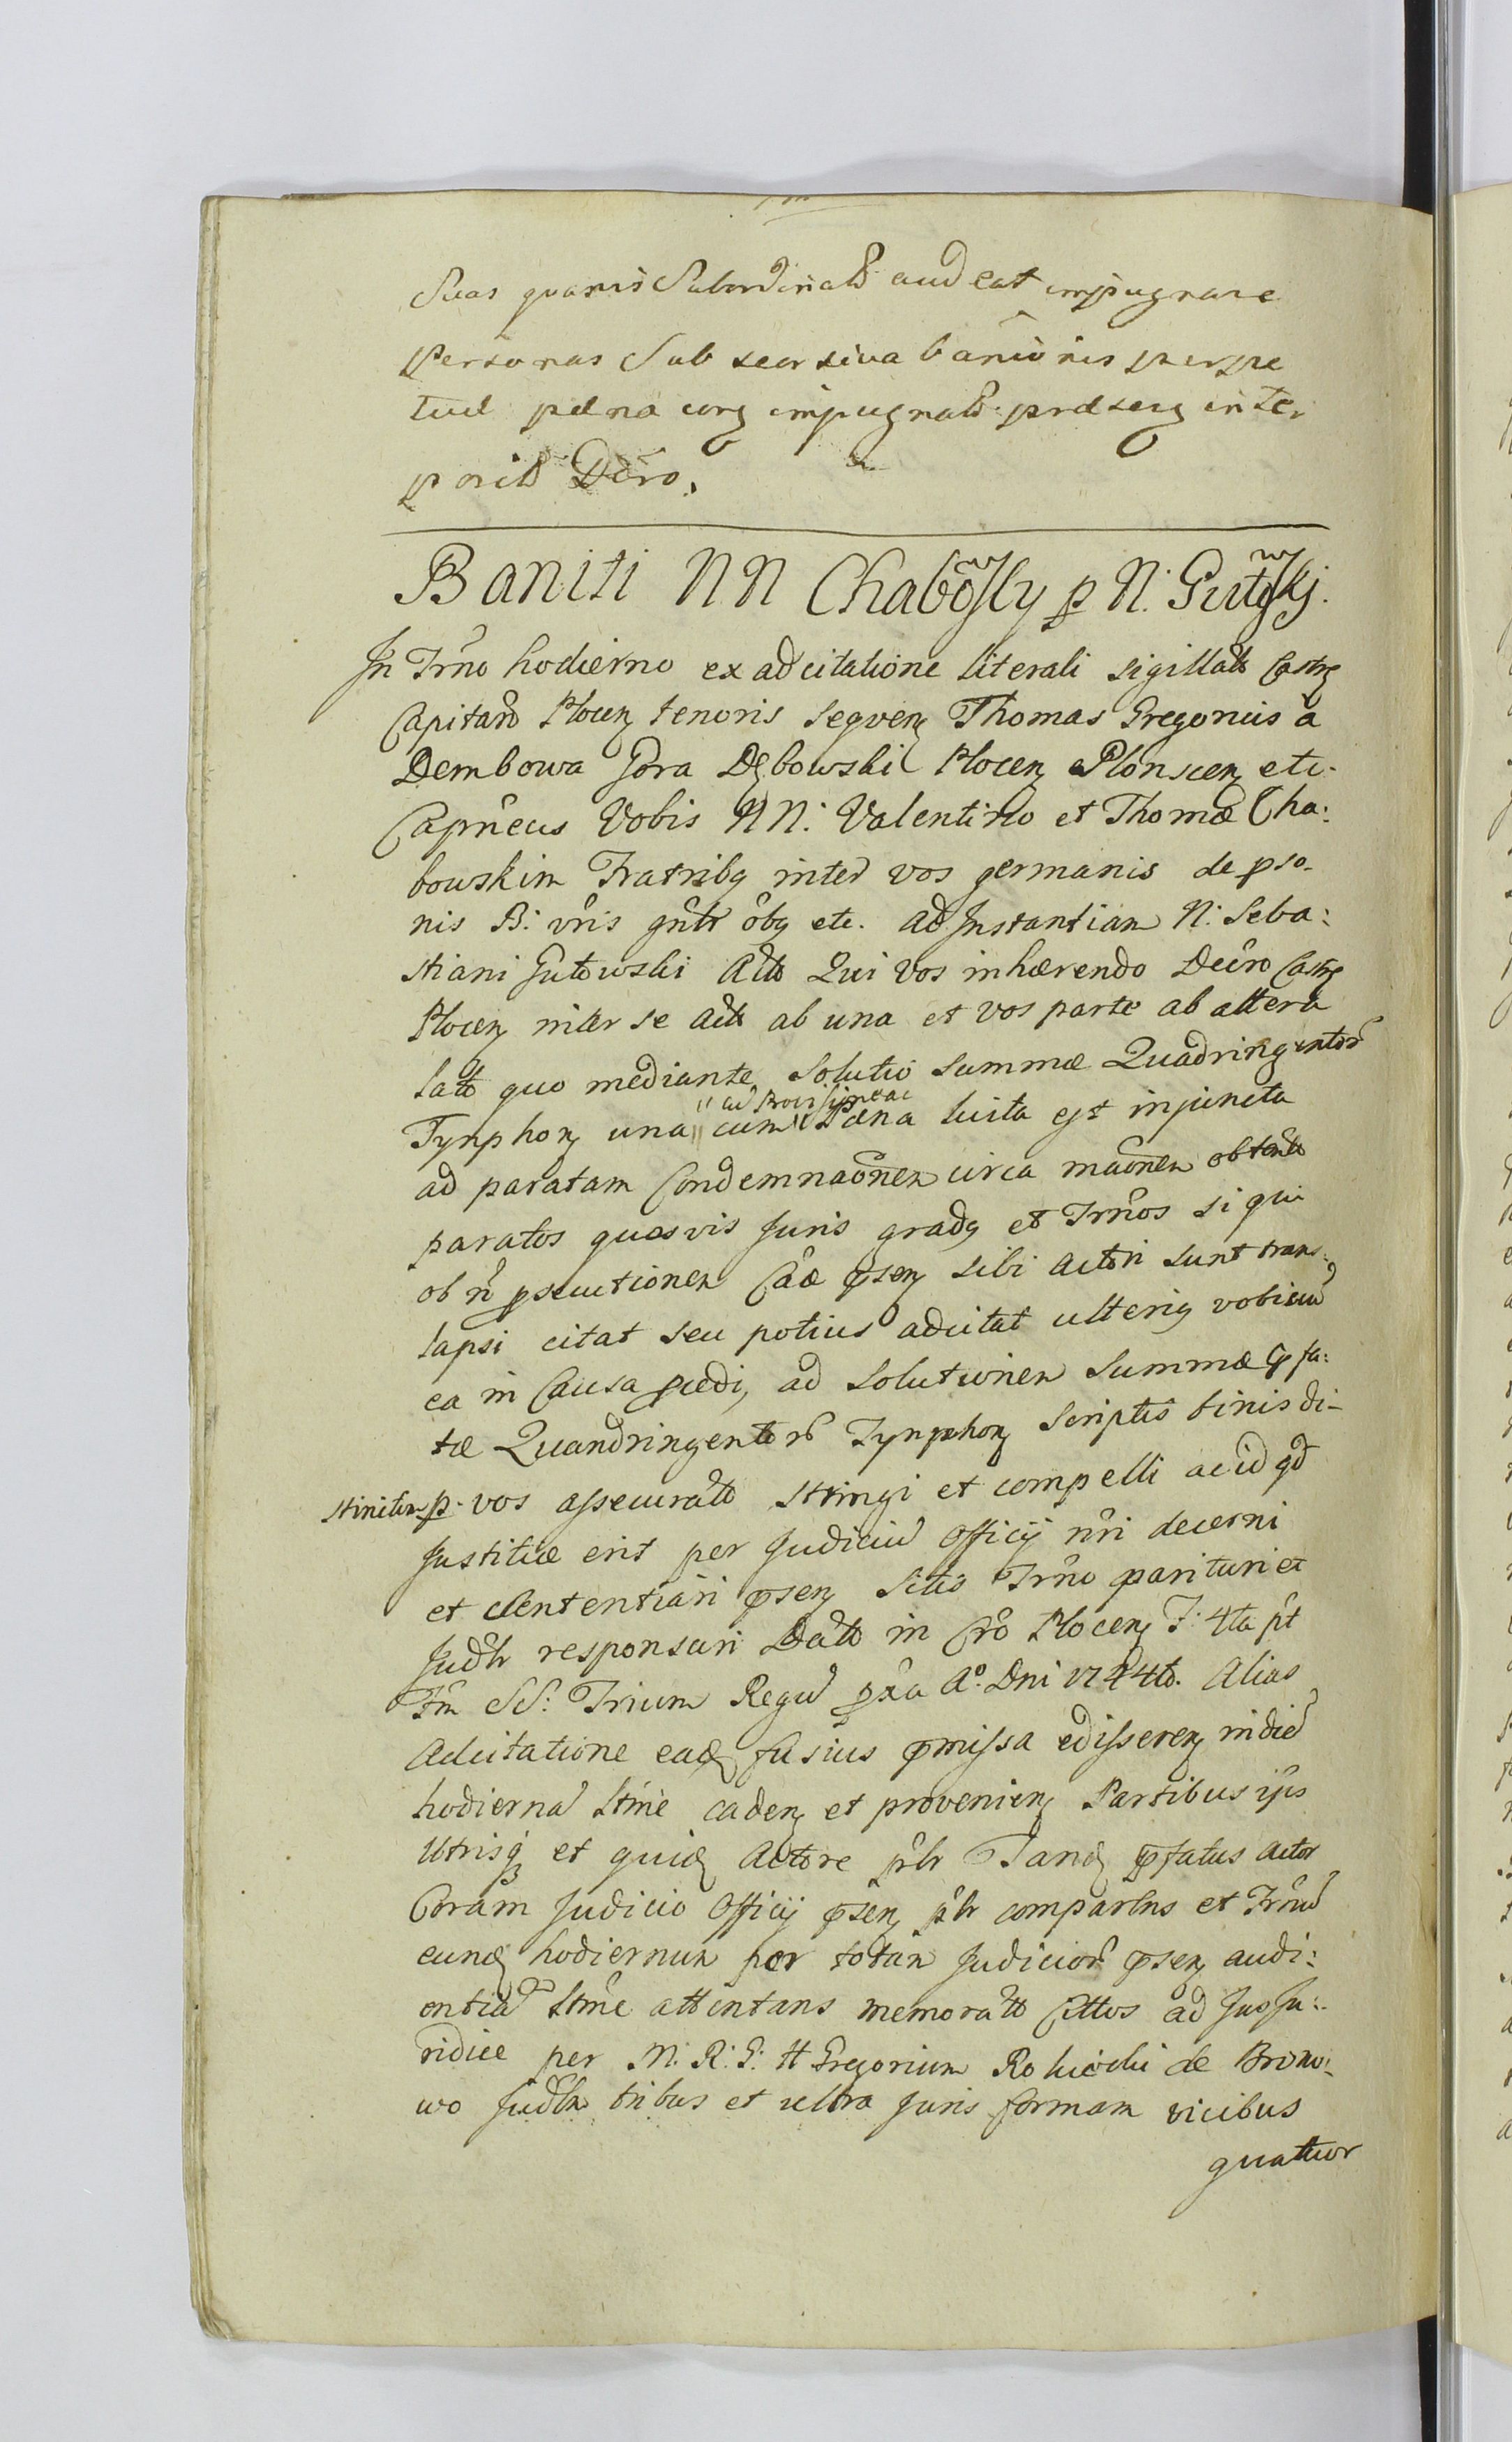 Suas quasvis Subordinatas audeat impugnare
Personas Sub secursiva banionis perpe
tuæ pæna eorq impugnato: præsenq inter
posito Decro.
Baniti NN Chabowsly p N: Gutowskj.
In Trno hodierno ex adcitatione literali sigillatt Castrq
Capitan Plocenq tenoris sequenq Thomas Gregorius a
Dembowa Gora Dębowski Plocenq Plonscenq etc.
Capneus Vobis NN: Valentino et Thomæ Cha:
bowskim Fratribq inter vos germanis de pso-
nis B: vris gnlr obq etc. ad Instantiam N: Seba:
stiani Gutowski Actt Qui Vos inhærendo Decro Castrq
Plocenq inter se Actt ab una et vos parte ab altera
latt quo mediante Solutio Summæ Quadringentor
Tynphonq una cum "ad Provisione ac" Pæna luita est injuncta
ad paratam Condemnaonem circa maonem obtentt
paratos quosvis Juris gradq et Trnos si qui
ob n psecutionem Caæ psenq sibi Actori sunt trans-
lapsi citat seu potius adcitat ulteriq vobiscum
ea in Causa pcedi, ad Solutionem Summæ pfa:
tæ Quandringentor Tynphonq Scriptis binis di-
stinctim p. vos assecuratt Stringi et compelli ac id qd
Justitiæ erit per Judicium Officij nri decerni
et Sententiari psenq Sitis Trno parituri et
Judlr responsuri Datt in Cro Plocenq F: 4ta pt
Fm SS: Trium Regum pxa Ao. Dni 1744to. Alias
Adcitatione eadq fusius pmissa edisserenq in die
hodierna Stme cadenq et provenienq Partibus ijs
Utrisq et quidq Actore plr Tandq pfatus Actor
Coram Judicio Officij psenq plr comparens et Trnum
eundq hodiernum per totam Judicior psenq audi:
entiam Stme attentans memoratt Cittos ad Jus Ju:
ridice per M: R: G: H Gregorium Rokicki de Brono:
wo Judlem tribus et ultra Juris formam vicibus
quatuor